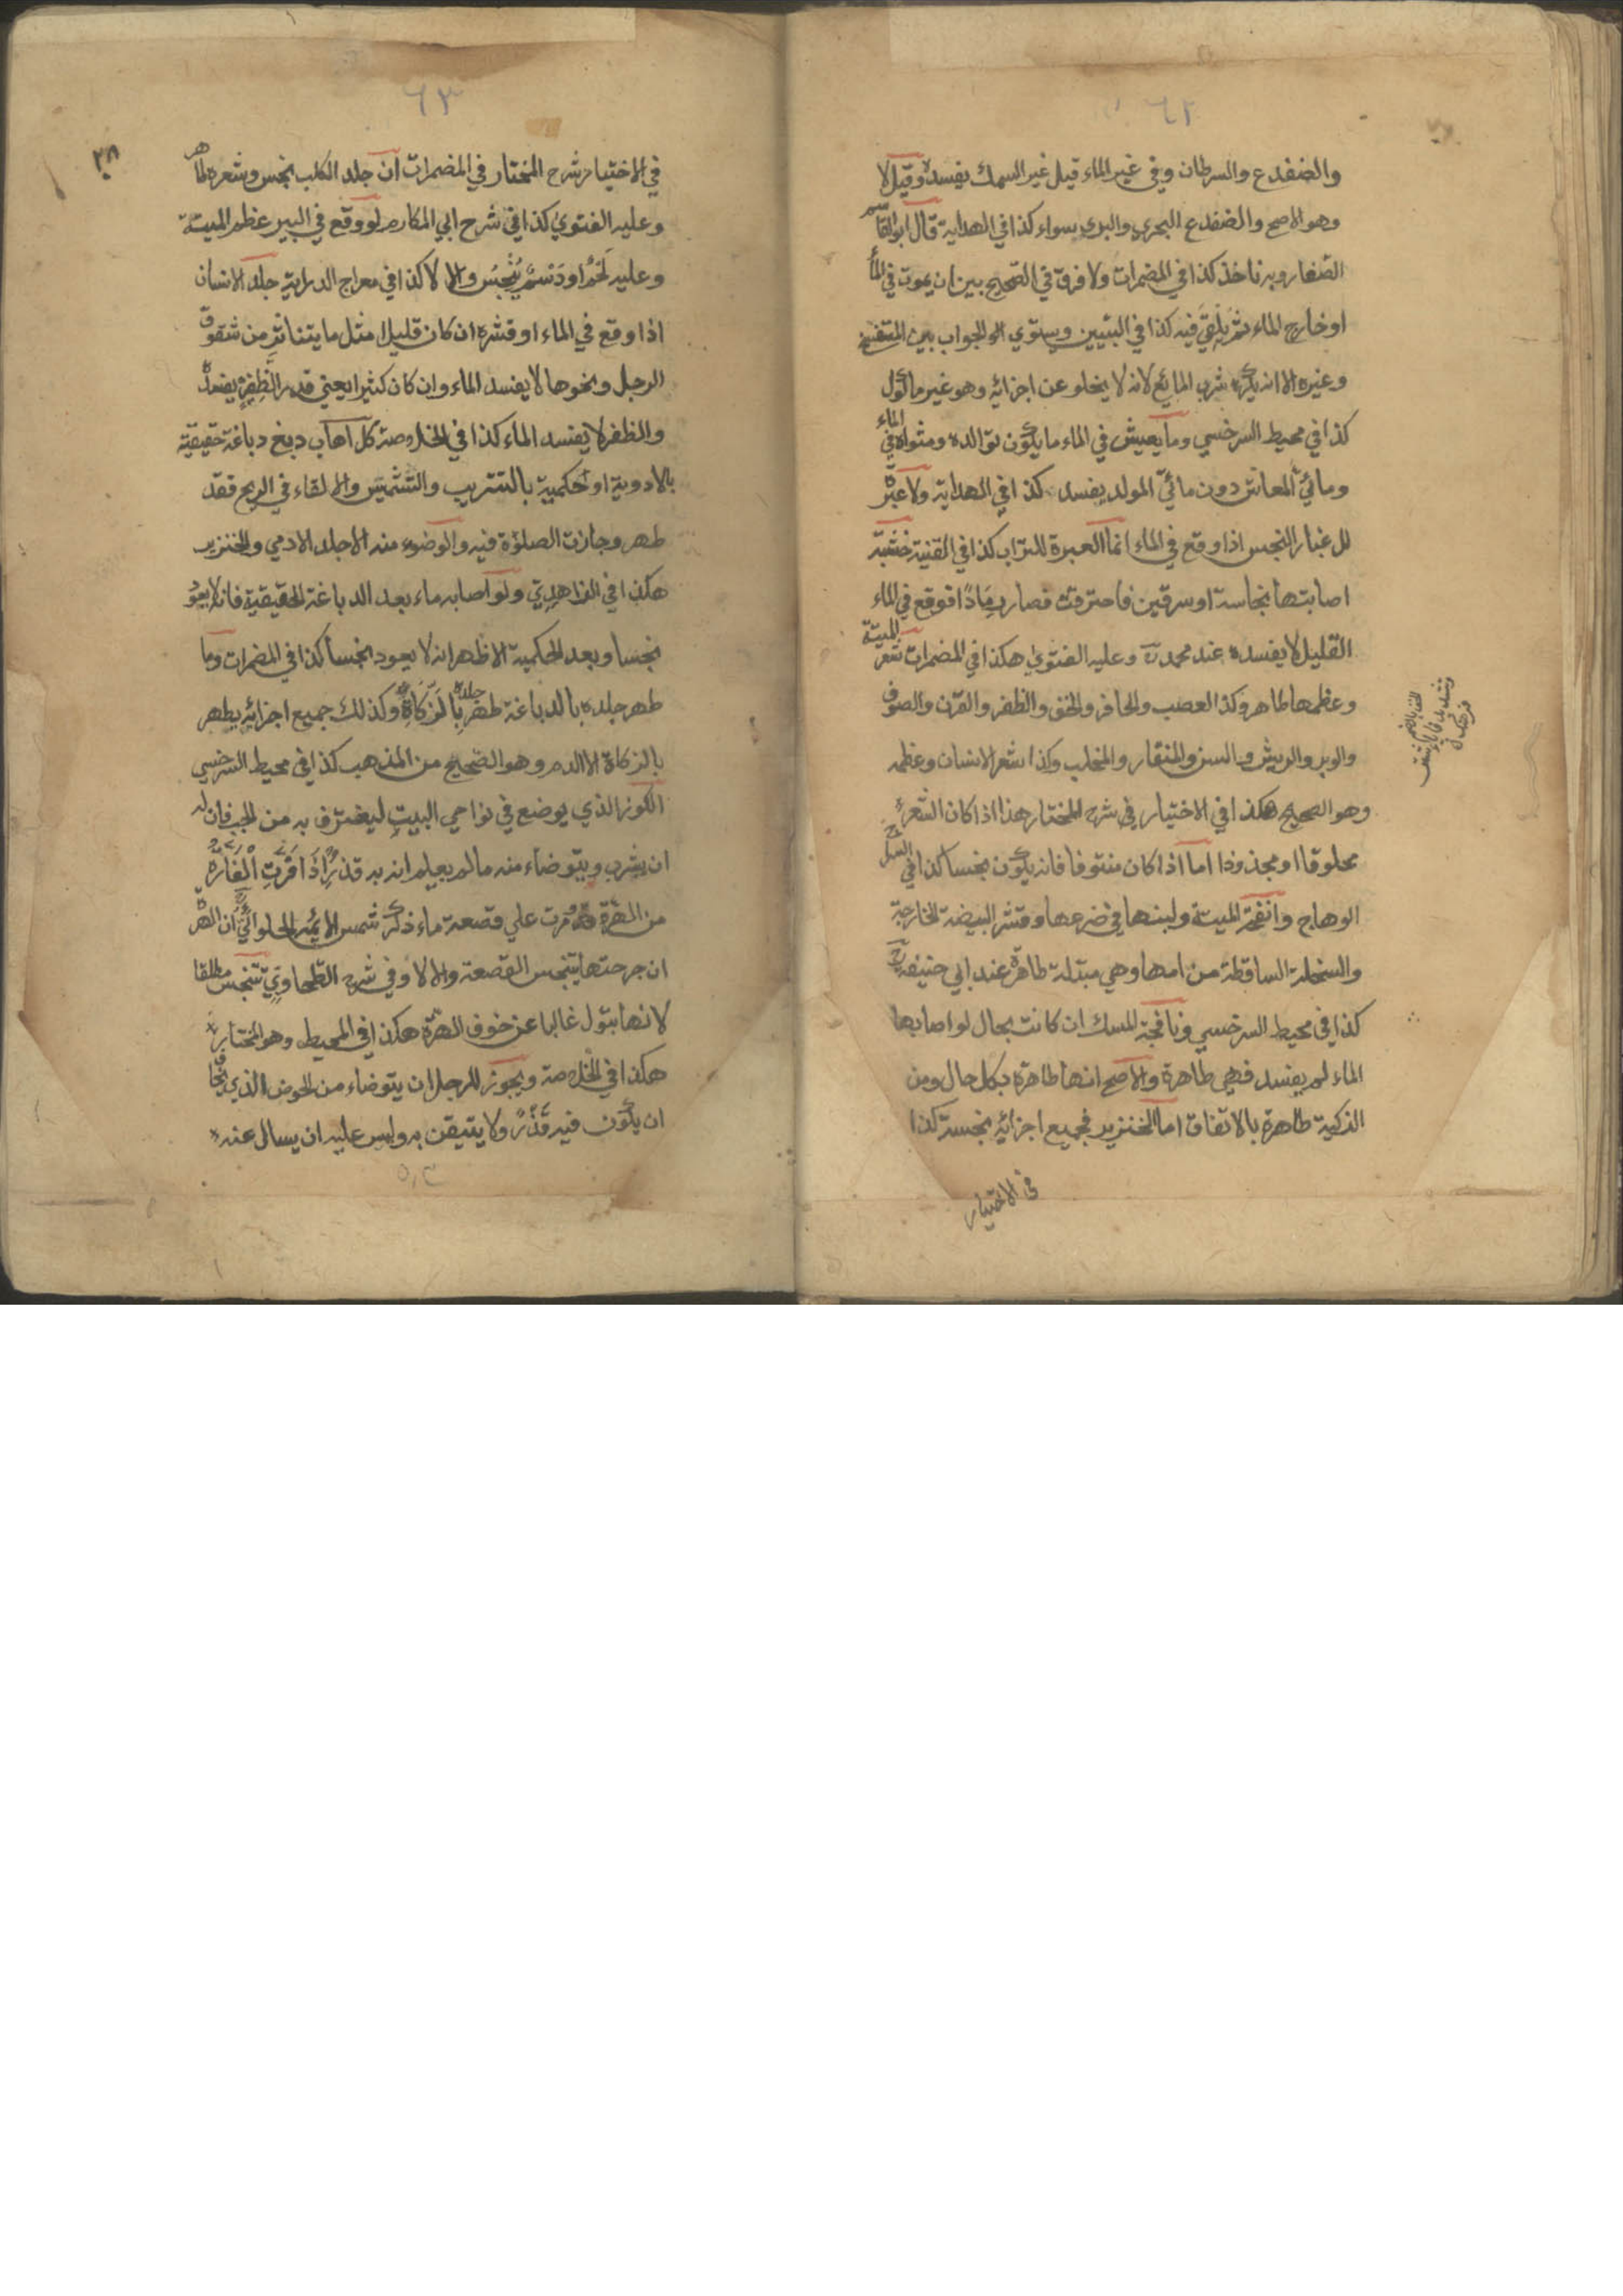 ٦٢
والضفدع والسرطان وفي غير الماء قيل غير السمك يفسده وقيل لا
وهو الاصح والضفدع البحري والبري سواء كذا في الهداية قال ابو القاسم
الصفار وبه ناخذ كذا في المضمرات ولا فرق في الصحيح بين ان يموت في الماء
او خارج الماء ثم يلقى فيه كذا في التبيين ويستوي الجواب بين المتفسخ
وغيره الا انه يكره شرب المائع لانه لا يخلو عن اجزائه وهو غير ماكول
كذا في محيط السرخسي وما يعيش في الماء ما يكون توالده ومثواه في الماء
ومائي المعاش دون مائي المولد يفسد كذا في الهداية ولا عبرة
للغبار النجس اذا وقع في الماء انما العبرة للتراب كذا في القنية خشبة
اصابتها نجاسة او سرقين فاحترقت فصار رمادا فوقع في الماء
القليل لا يفسده عند محمد رح وعليه الفتوى هكذا في المضمرات شعر الميتة
وعظمها طاهر وكذا العصب والحافر والخف والظفر والقرن والصوف
والوبر والريش والسن والمنقار والمخلب وكذا شعر الانسان وعظمه
وهو الصحيح هكذا في الاختيار في شرح المختار هذا اذا كان الشعر
محلوقا او مجذوذا اما اذا كان منتوفا فانه يكون نجسا كذا في السراج
الوهاج وانفحة الميتة ولبنها في ضرعها وقشر البيضة الخارجة
والسخلة الساقطة من امها وهي مبتلة طاهرة عند ابي حنيفة رح
كذا في محيط السرخسي ونافجة المسك ان كانت بحال لو اصابها
الماء لم يفسد فهي طاهرة والاصح انها طاهرة بكل حال ومن
الذكية طاهرة بالاتفاق اما الخنزير فجميع اجزائه نجسة كذا
في الاختيار
٦٣
٣٨
في الاختيار شرح المختار في المضمرات ان جلد الكلب نجس وشعره طاهر
وعليه الفتوى كذا في شرح ابي المكارم لو وقع في البير عظم الميتة
وعليه لحم او دسم ينجس والا لا كذا في معراج الدراية جلد الانسان
اذا وقع في الماء او قشره ان كان قليلا مثل ما يتناثر من شقوق
الرجل ونحوها لا يفسد الماء وان كان كثيرا يعني قدر الظفر يفسده
والظفر لا يفسد الماء كذا في الخلاصة كل اهاب دبغ دباغة حقيقية
بالادوية او حكمية بالتتريب والتشميس والالقاء في الريح فقد
طهر وجازت الصلوة فيه والوضوء منه الا جلد الادمي والخنزير
هكذا في الزاهدي ولو اصابه ماء بعد الدباغة الحقيقية فانه لا يعود
نجسا وبعد الحكمية الاظهر انه لا يعود نجسا كذا في المضمرات وما
طهر جلده بالدباغة طهر جلده بالزكاة وكذلك جميع اجزائه يطهر
بالزكاة الا الدم وهو الصحيح من المذهب كذا في محيط السرخسي
الكوز الذي يوضع في نواحي البيت ليغترف به من الحب فان له
ان يشرب ويتوضاء منه ما لم يعلم انه به قذر اذا فرت الفارة
من الهرة ومرت علي قصعة ماء ذكر شمس الائمه الحلوائي ان الهرة
ان جرحتها يتنجس القصعة والا لا وفي شرح الطحاوي تتنجس مطلقا
لانها تبول غالبا عن خوف الهرة هكذا في المحيط وهو المختار
هكذا في الخلاصة ويجوز للرجل ان يتوضاء من الحوض الذي يخاف
ان يكون فيه قذر ولا يتيقن به وليس عليه ان يسال عنه